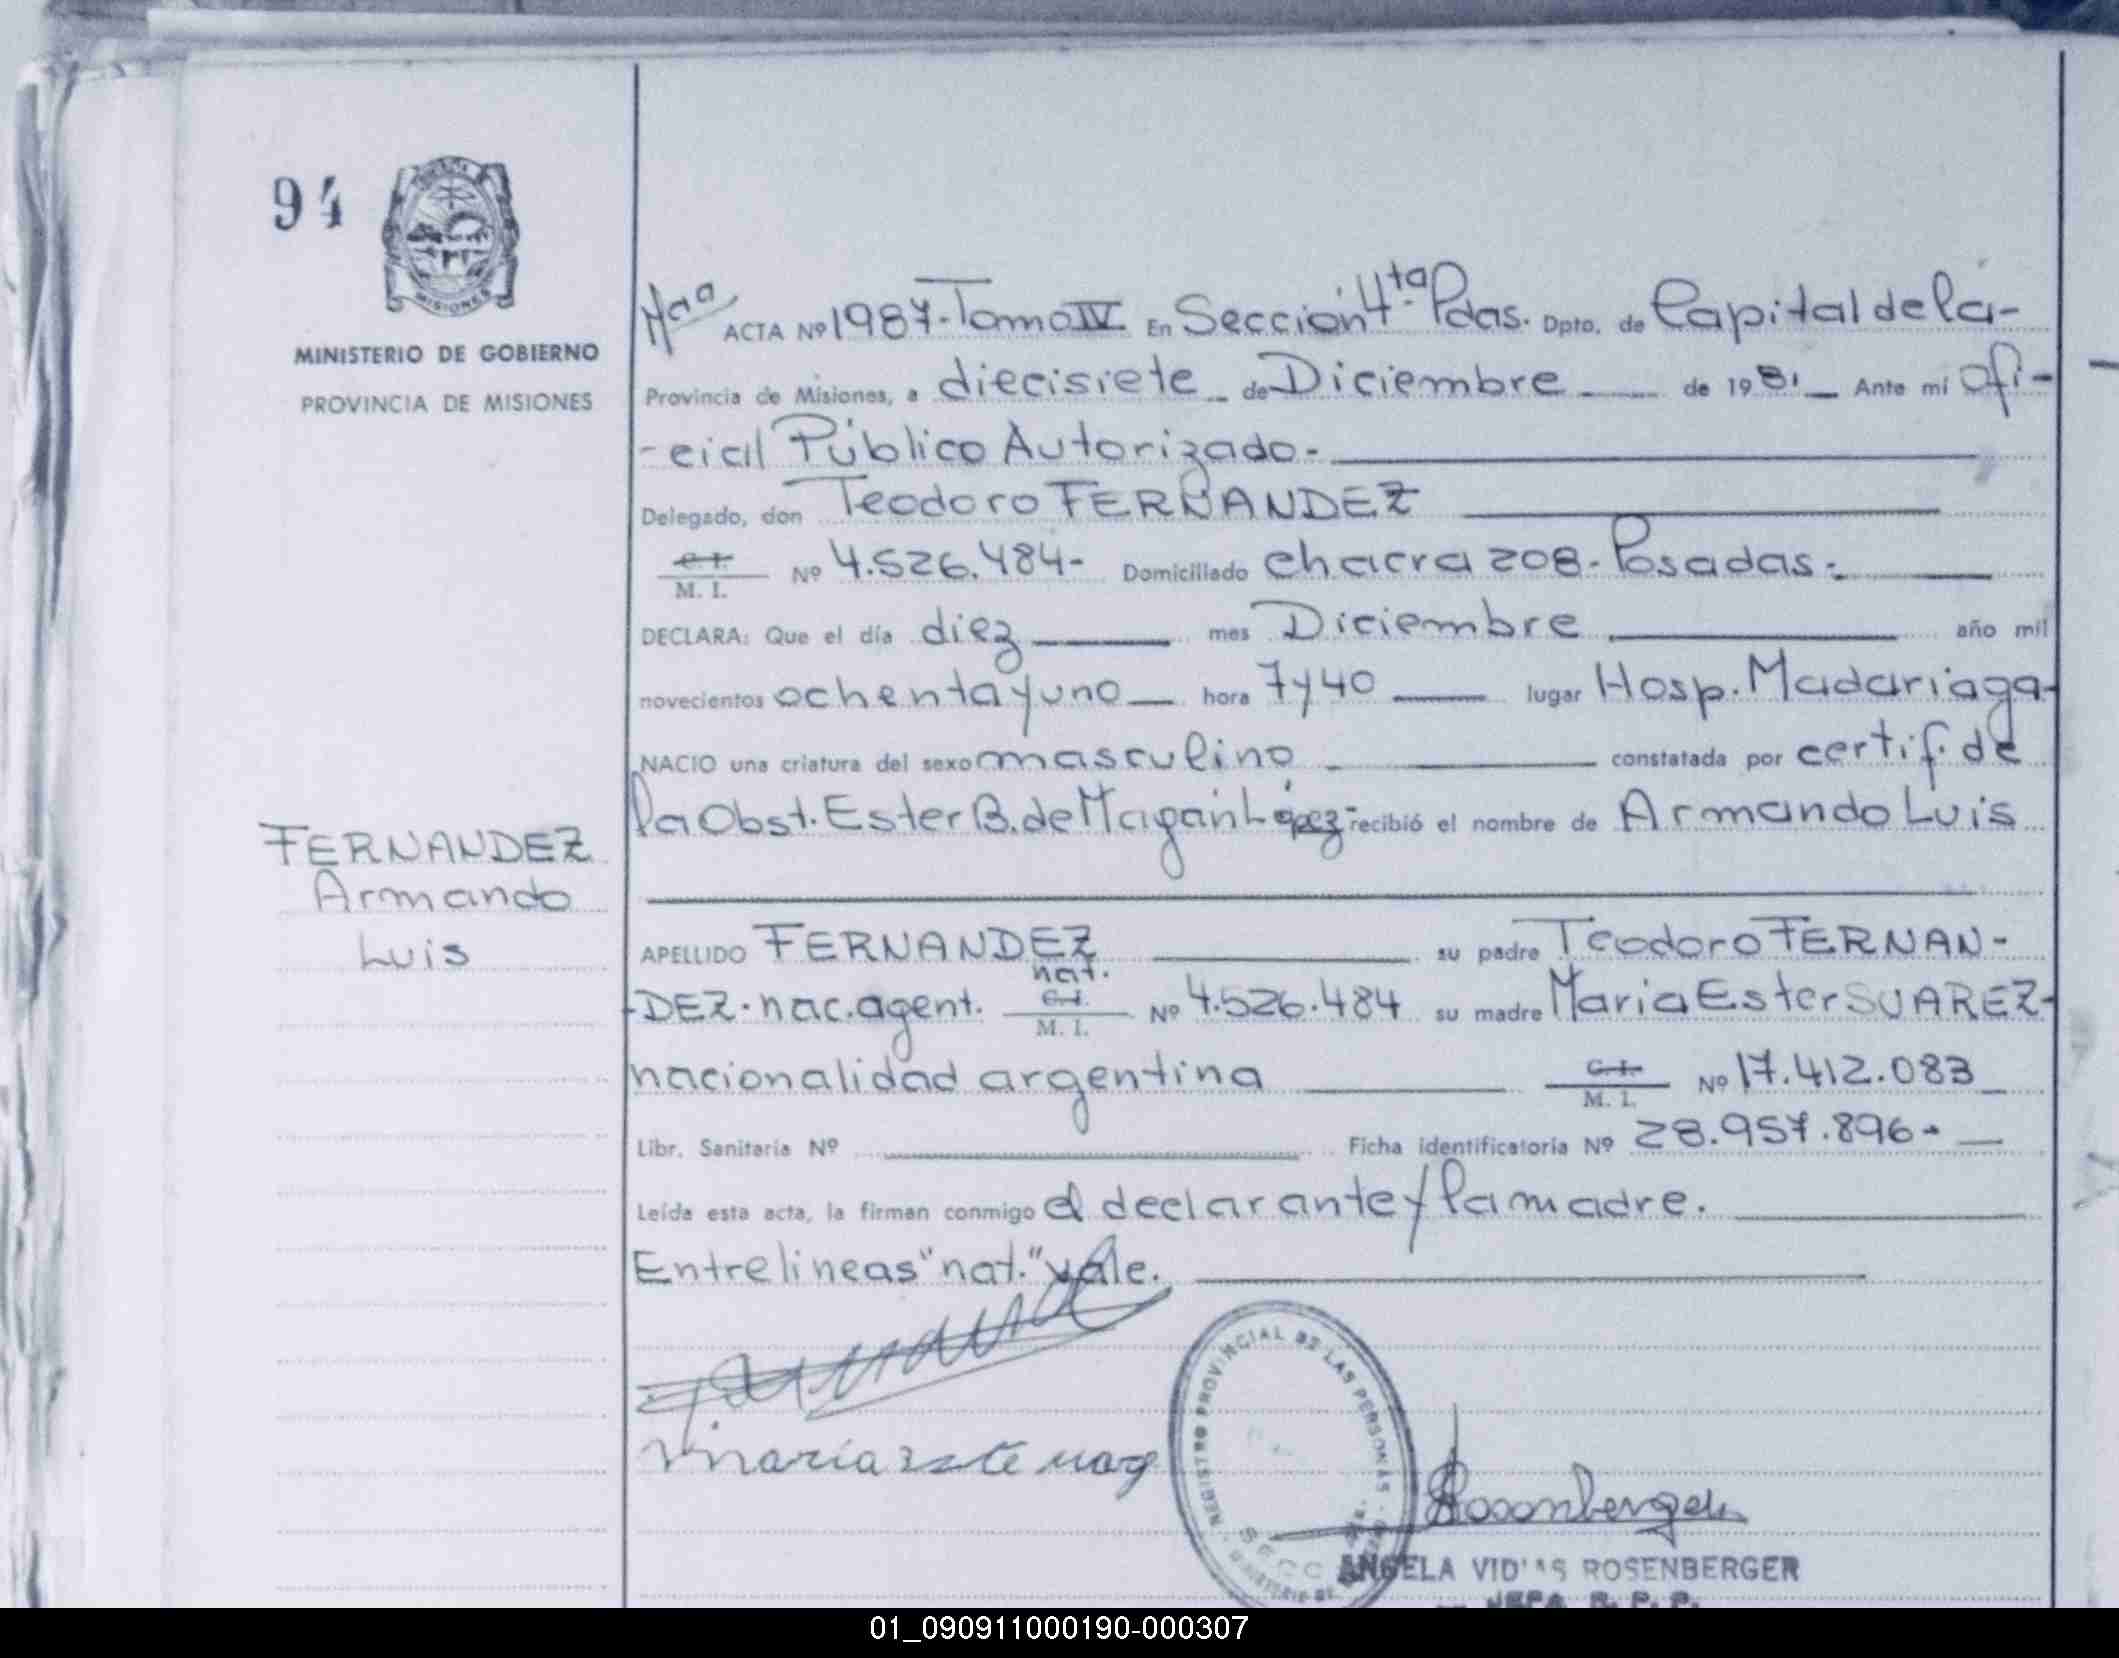 94
MISIONES
MINISTERIO DE GOBIERNO
PROVINCIA DE MISIONES
FERNANDEZ
Armando
Luis
ACTA Nº 1987-Tomo IV En Sección 4ta Pdas. Dpto. de Capital de la-
Provincia de Misiones, a diecisiete de Diciembre de 1981 Ante mí Ofi-
-cial Público Autorizado-
Delegado, don Teodoro FERNANDEZ
C.I. M. I. Nº 4.526.484- Domiciliado chacra 208-Posadas-
DECLARA: Que el día diez mes Diciembre año mil
novecientos ochenta y uno hora 7 y 40 lugar Hosp. Madariaga-
NACIO una criatura del sexo masculino constatada por certif. de
la Obst. Ester B. de Magan López- recibió el nombre de Armando Luis
APELLIDO FERNANDEZ su padre Teodoro FERNAN-
nat.
-DEZ-nac.agent. C.I. M. I. Nº 4.526.484 su madre Maria Ester SUAREZ-
nacionalidad argentina C.I. M. I. Nº 17.412.083
Libr. Sanitaria Nº Ficha identificatoria Nº 28.957.896-
Leída esta acta, la firman conmigo el declarante y la madre.
Entrelineas "nat." vale.
REGISTRO PROVINCIAL DE LAS PERSONAS
maria
Rosenberger
ANGELA VID'AS ROSENBERGER
JEFA R. P. P.
01_090911000190-000307